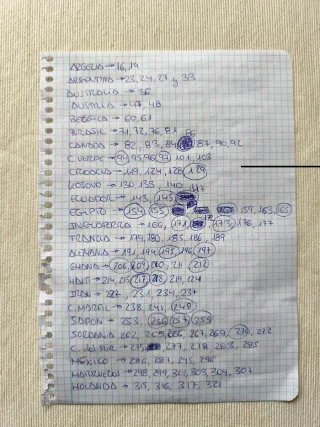 ARGELIA → 16, 19
ARGENTINA → 23, 24, 27 y 33
AUSTRALIA → 36
AUSTRIA → 47, 48
BELGICA → 60, 61
BRASIL → 71, 72, 76, 81, 86
CANADA → 82, 83, 84, 87, 90, 92
C. VERDE → 94, 95, 96, 97, 101, 103
CROACIA → 119, 124, 128, 129
KOSOVO → 130, 135, 140
ECUADOR → 143, 145, 147
EGIPTO → 154, 155, 159, 163, 165
INGLATERRA → 166, 171, 173, 176, 177
FRANCIA → 179, 180, 185, 186, 189
ALEMANIA → 191, 194, 195, 196, 197
GHANA → 206, 209, 210, 211, 212
HAITI → 214, 215, 217, 218, 219, 221
IRAN → 227, 231, 234, 237
C. MARFIL → 238, 241, 248
JAPON → 253, 256, 257, 258
JORDANIA 262, 265, 266, 267, 269, 270, 272
C. del SUR → 275, 277, 278, 283, 285
MÉXICO → 286, 287, 295, 296
MARRUECOS → 298, 299, 302, 303, 304, 307
HOLANDA → 315, 316, 317, 321